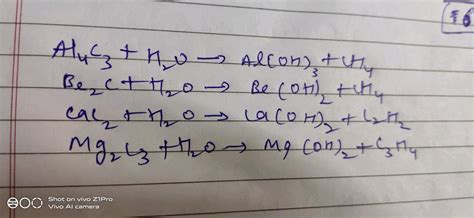 16
Al₄C₃ + H₂O → Al(OH)₃ + CH₄
Be₂C + H₂O → Be(OH)₂ + CH₄
CaC₂ + H₂O → Ca(OH)₂ + C₂H₂
Mg₂C₃ + H₂O → Mg(OH)₂ + C₃H₄
Shot on vivo Z1Pro
Vivo AI camera